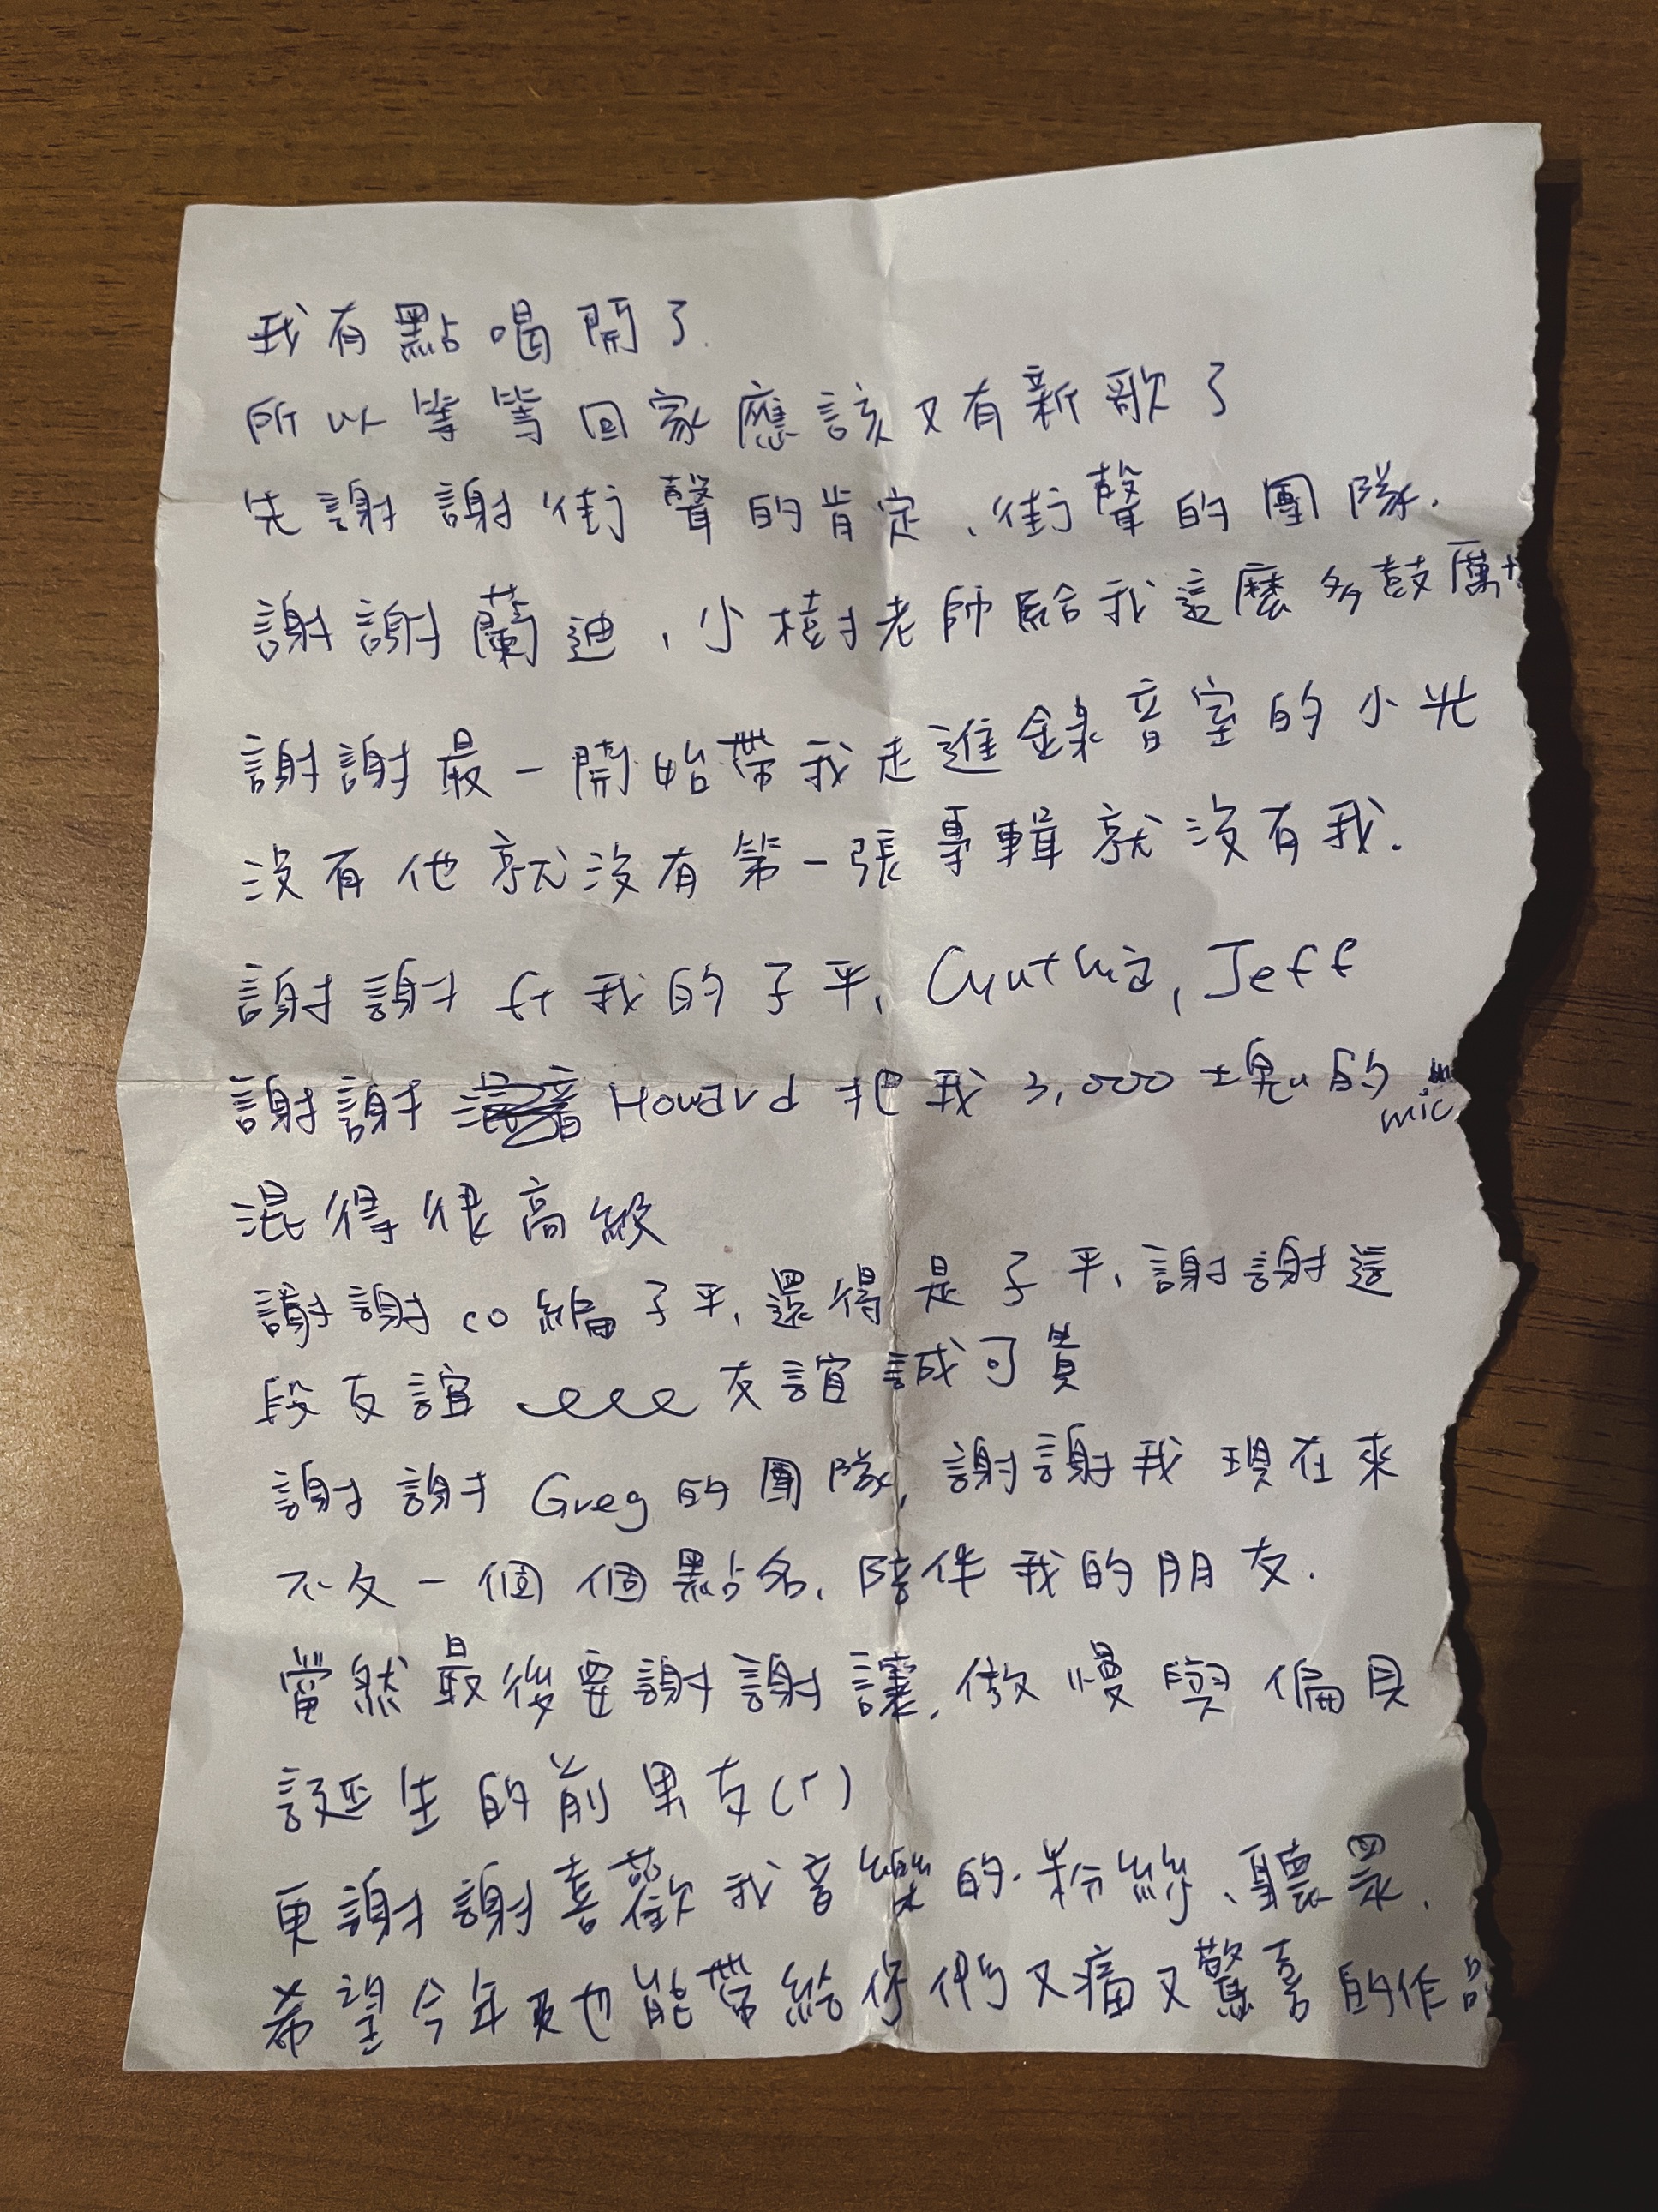 我有點喝開了
所以等等回家應該又有新歌了
先謝謝街聲的肯定、街聲的團隊.
謝謝蘭迪、小樹老師給我這麼多鼓厲
謝謝最一開始帶我走進錄音室的小光
沒有他就沒有第一張專輯就沒有我.
謝謝ft我的子平, Cynthia, Jeff
謝謝 Howard 把我3,000塊的 mic
混得很高級
謝謝co編子平, 還得是子平, 謝謝這
段友誼 友誼誠可貴
謝謝Greg的團隊, 謝謝我現在來
不及一個個點名, 陪伴我的朋友.
當然最後要謝謝讓, 傲慢與偏見
誕生的前男友(r)
更謝謝喜歡我音樂的粉絲、聽眾,
希望今年也能帶給你們又痛又驚喜的作品